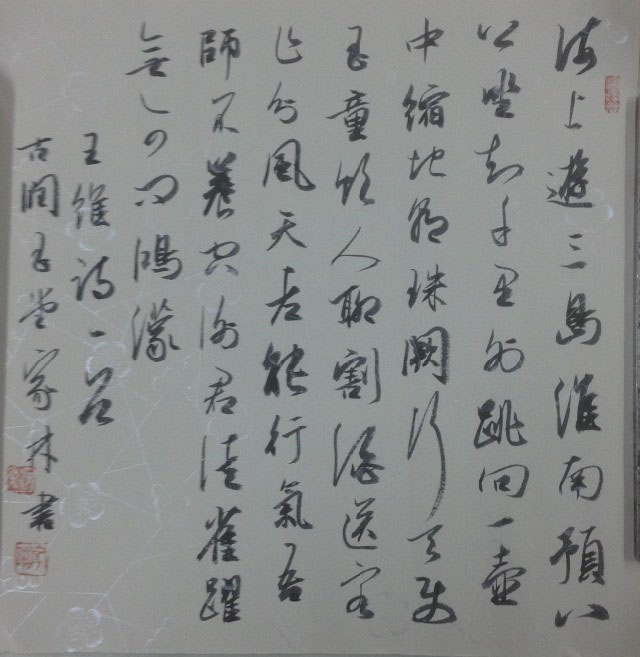 海上遊三島淮南預八
公坐知千里外跳向一壺
中縮地朝珠闕行天使
玉童飲人聊割酒送客
乍分風天老能行氣吾
師不養空謝君徒雀躍
無可問鴻濛
王維詩一首
古潤玉堂家林書